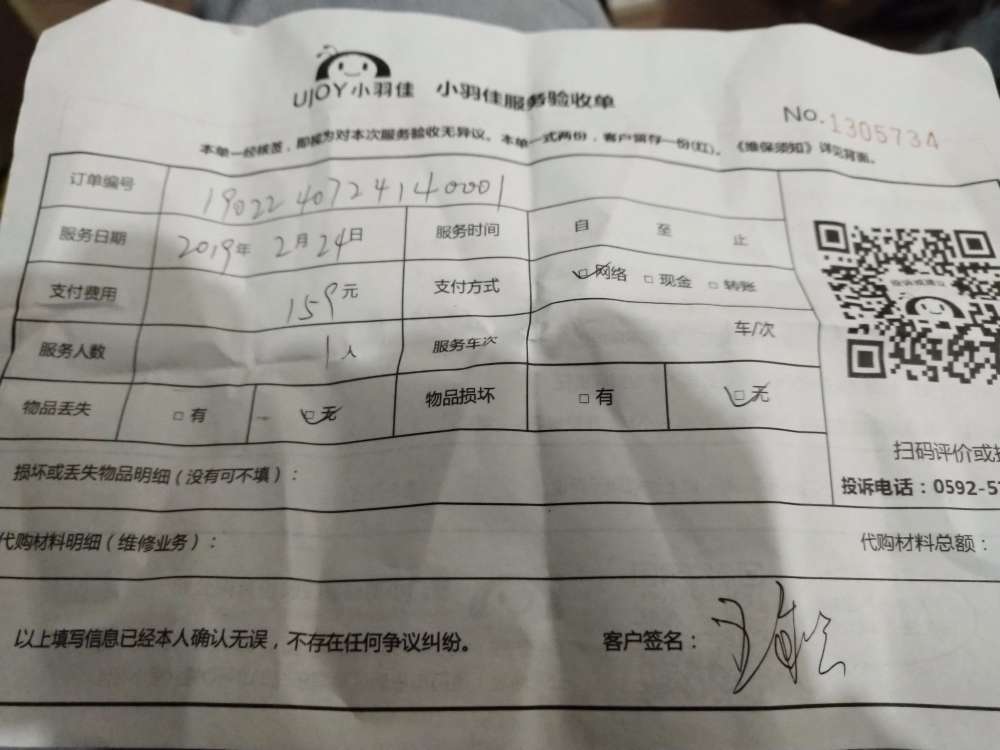 UJOY小羽佳 小羽佳服务验收单
No.1305734
本单一经核签，即视为对本次服务验收无异议。本单一式两份，客户留存一份(红)。《维保须知》详见背面。
订单编号 1902240724140001
服务日期 2019年 2月24日 服务时间 自 至 止
支付费用 159元 支付方式 ☑网络 □现金 □转账
服务人数 1人 服务车次 车/次
物品丢失 □有 ☑无 物品损坏 □有 ☑无
投诉或建议
扫码评价或
投诉电话：0592-5
损坏或丢失物品明细（没有可不填）：
代购材料明细（维修业务）： 代购材料总额：
以上填写信息已经本人确认无误，不存在任何争议纠纷。 客户签名：